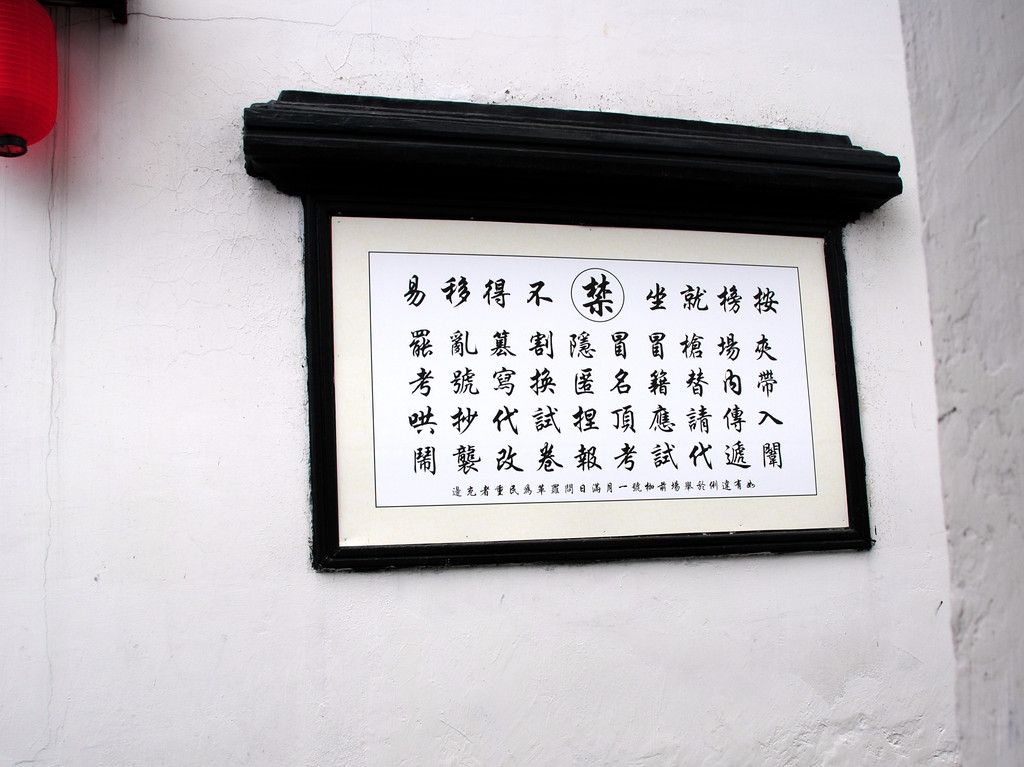 按榜就坐 禁 不得移易
夾帶入闈
場內傳遞
槍替請代
冒籍應試
冒名頂考
隱匿捏報
割換試卷
篡寫代改
亂號抄襲
罷考哄鬧
如有違例於舉場前枷號一月滿日問罪革爲民重者充邊